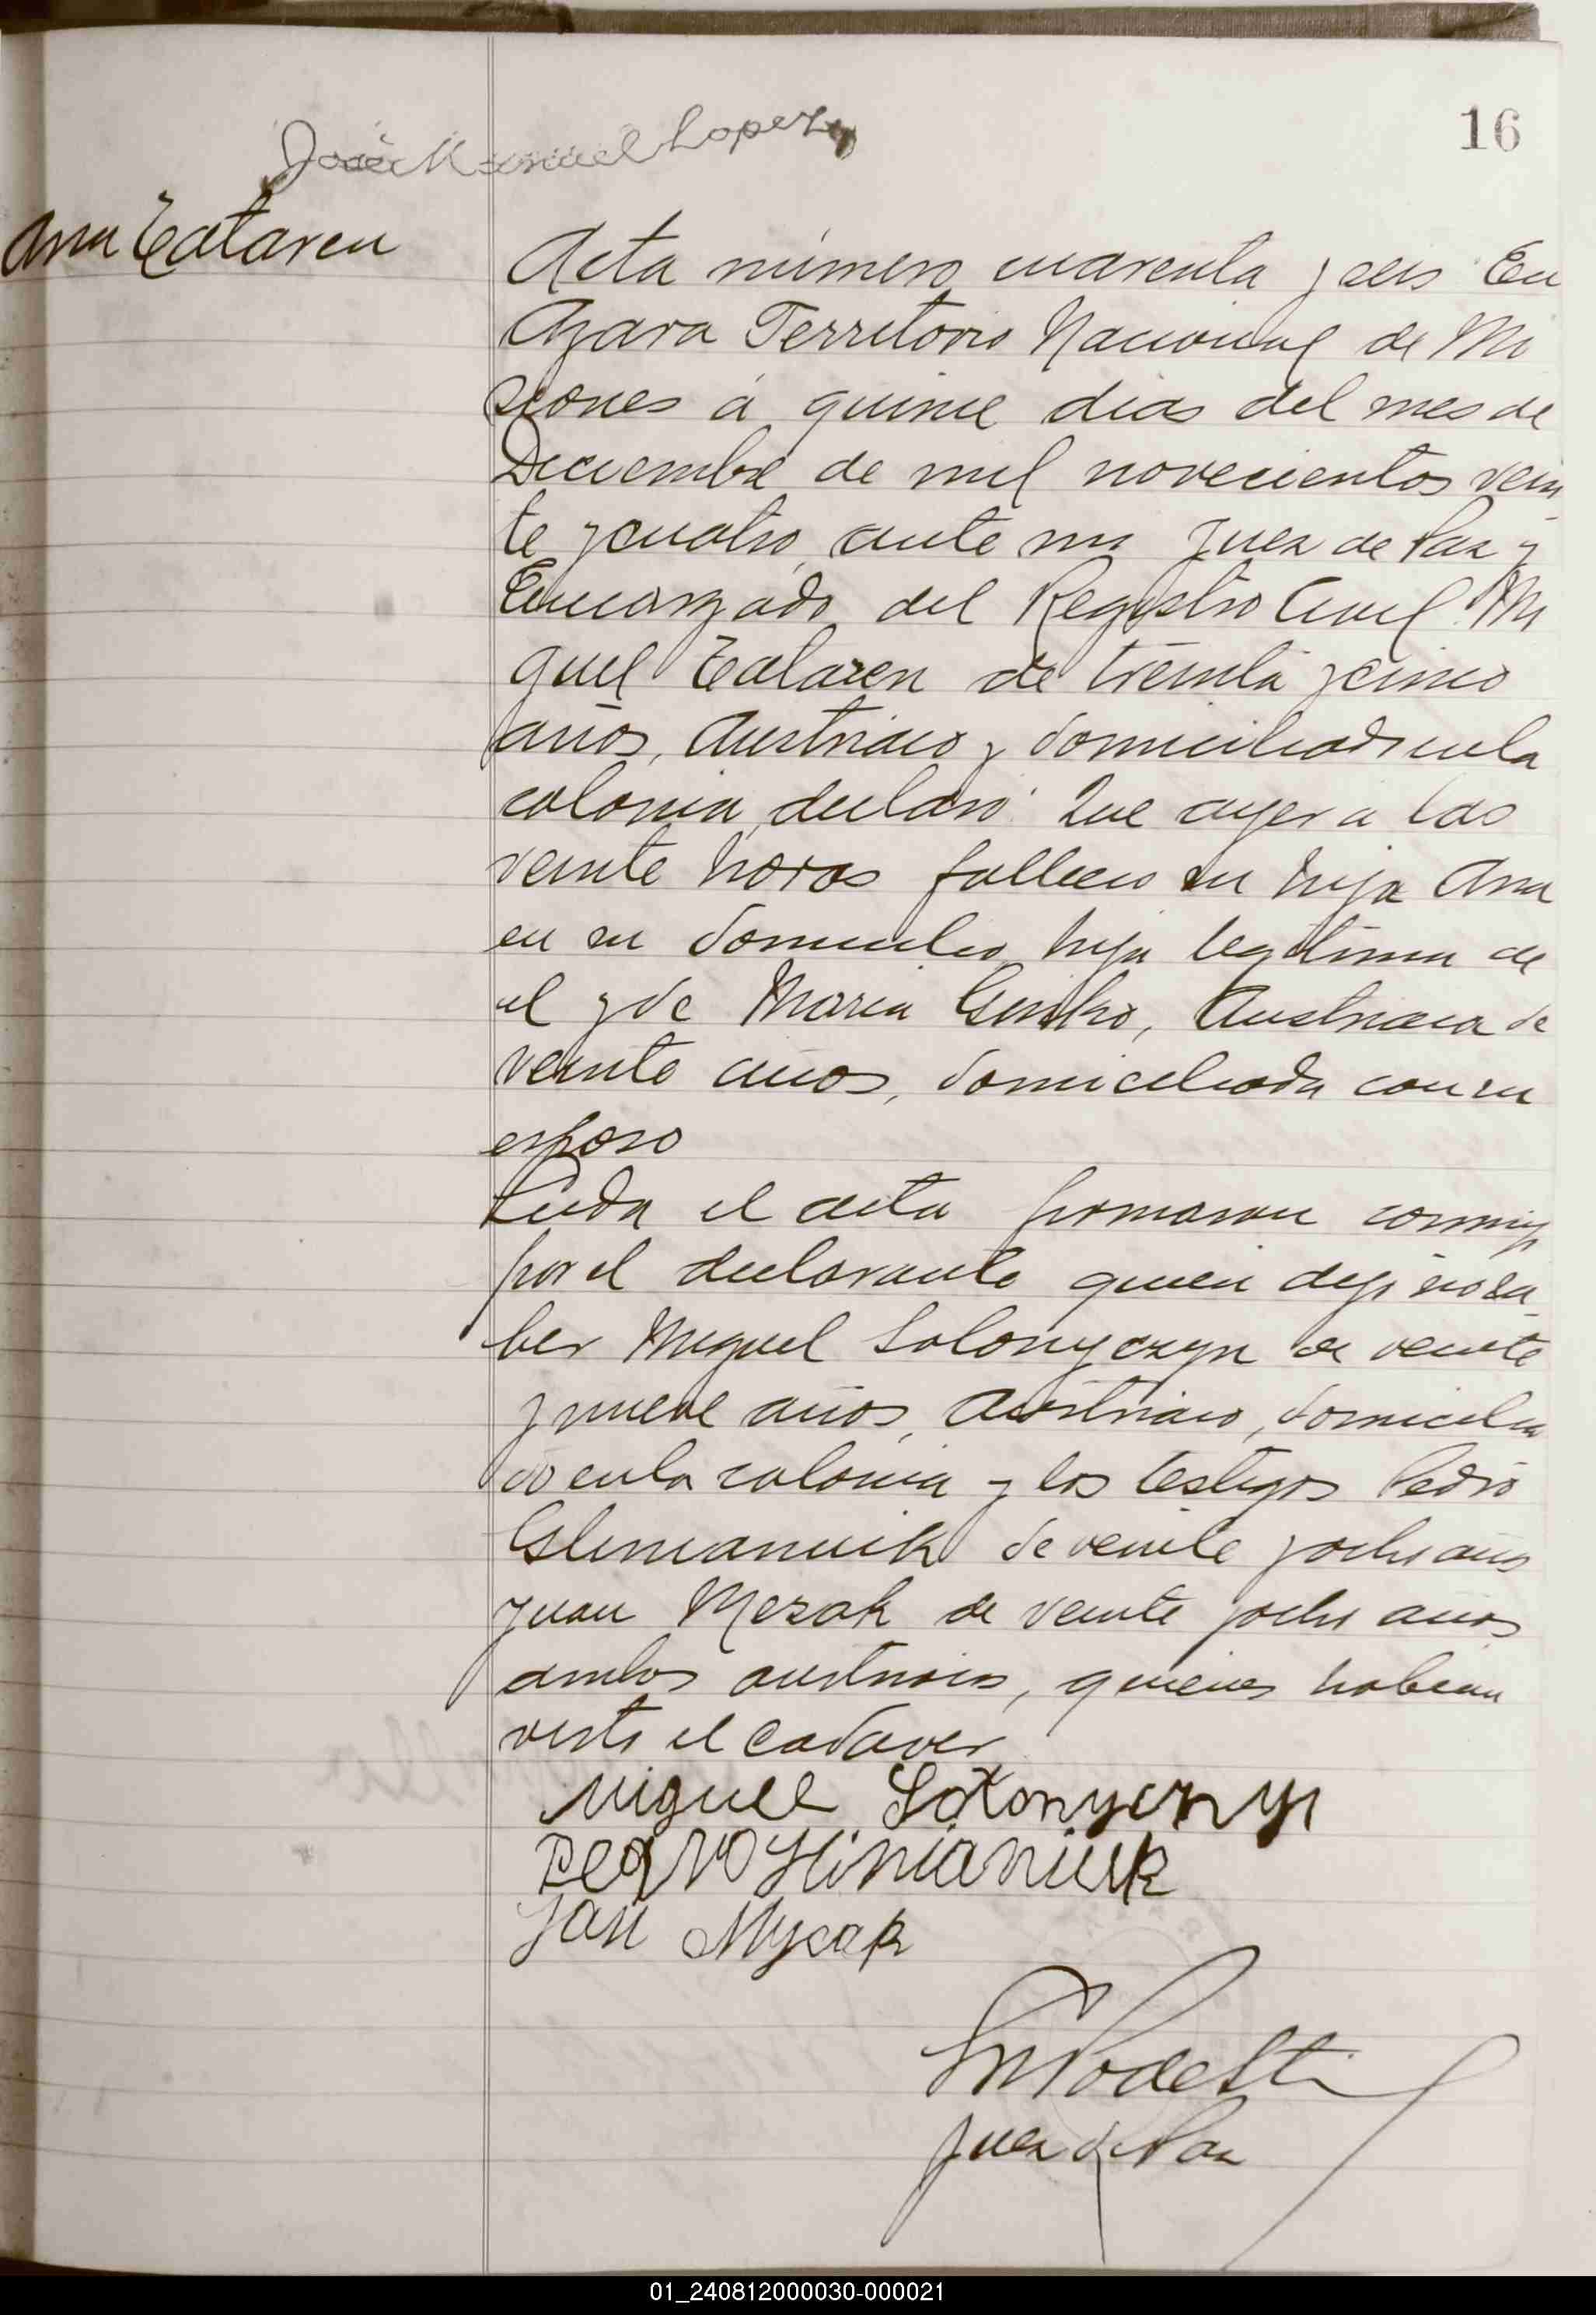 16
José Manuel Lopez
Ana Tataren
Acta número cuarenta y seis En
Azara Territorio Nacional de Mi
siones á quince dias del mes de
Diciembre de mil novecientos vein
te y cuatro, ante mi Juez de Paz y
Encargado del Registro Civil Mi
guel Tataren de treinta y cinco
años, Austriaco y domiciliado en la
colonia, declaró: Que ayer a las
veinte horas fallecio su hija Ana
en su domicilio, hija legitima de
el y de Maria, Austriaca de
veinte años, domiciliada con su
esposo
Leida el acta firmaron conmigo
por el declarante quien dijo no sa
ber Miguel Solonyczyn de veinte
y nueve años, Austriaco, domicilia
do en la colonia y los testigos Pedro
de veinte y ocho años
Juan Mezak de veinte y ocho años
ambos austriacos, quienes habian
visto el cadaver
Miguel Sołonyczyn
Pedro Klimaniuk
Jan Myzak
Podesti
Juez de Paz
01_240812000030-000021